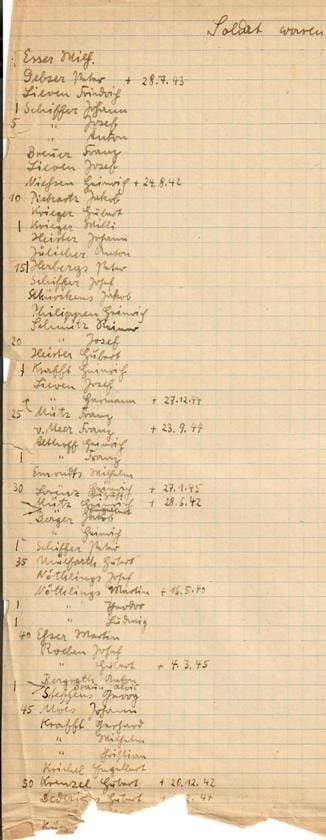 Soldat waren
Esser Wilh.
Gebser Peter + 28.7.43
Lieven Friedrich
1 Schiffer Johann
5 " Josef
" Anton
Breuer Franz
Lieven Josef
Niehsen Heinrich + 24.8.42
10 Pickartz Jakob
Krieger Hubert
1 Krieger Willi
Heister Johann
Jülicher Anton
15 Herbergs Peter
Schiffer Josef
Schürkens Jakob
Philippen Heinrich
Schmitz Reiner
20 " Josef
Heister Hubert
1 Krafft Heinrich
Lieven Josef
" Hermann + 27.12.44
25 Mütz Franz
v. Meer Franz + 23.9.44
Althoff Heinrich
1 " Franz
Emondts Wilhelm
30 Lorenz Heinrich + 27.1.45
Mütz + 28.6.42
Berger Jakob
" Heinrich
1 Schiffer Peter
35 Hubert
Nöthlings Josef
Nöthlings Martin + 16.5.40
1 " Theodor
1 " Ludwig
40 Esser Martin
Roeben Josef
" Hubert + 4.3.45
Bergrath Anton
1 Steffens Georg
45 Moes Johann
Krafft Gerhard
" Wilhelm
" Christian
Krichel Engelbert
50 Krenzel Hubert + 20.12.42
Diederichs Hubert 44